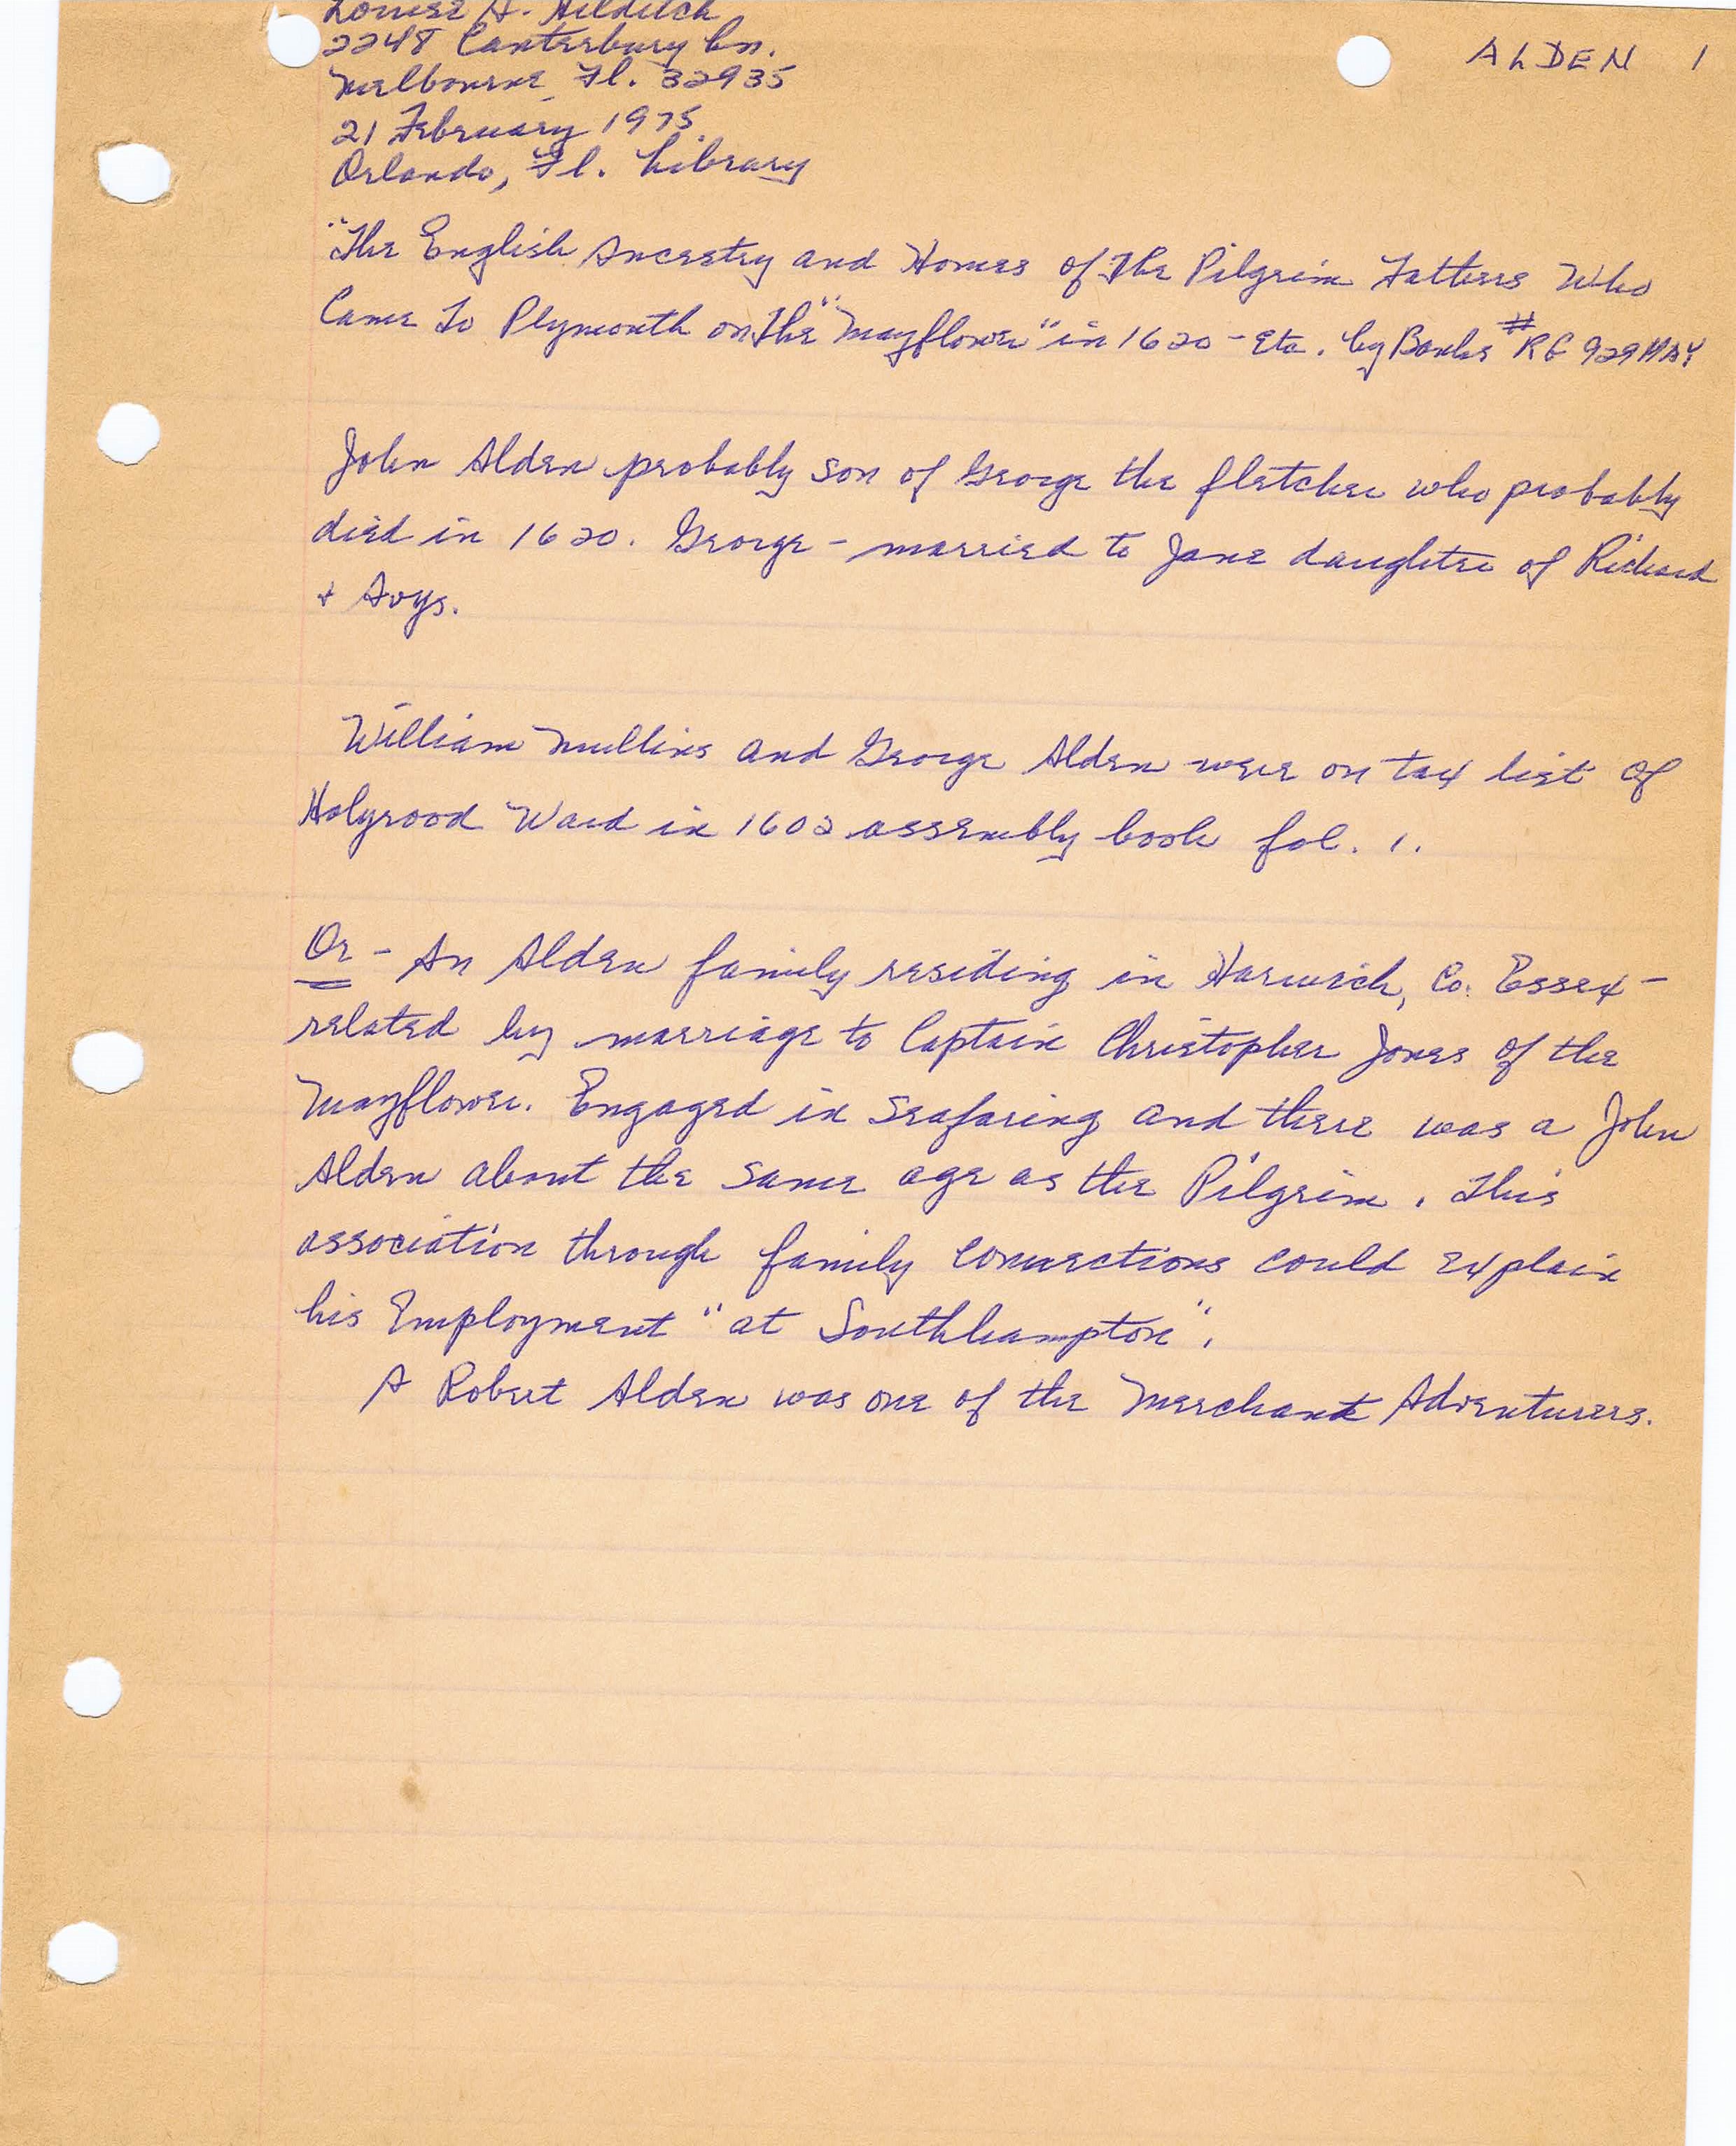 Louise A. Hilditch
2248 Canterbury Ln.
Melbourne, Fl. 32935
ALDEN 1
21 February 1975
Orlando, Fl. Library
"The English Ancestry and Homes of The Pilgrim Fathers Who
Came To Plymouth on The "Mayflower" in 1620 - Etc. by Banks # RE 929 MAY
John Alden probably son of George the fletcher who probably
died in 1620. George - married to Jane daughter of Richard
+ Avys.
William Mullins and George Alden were on tax list of
Holyrood Ward in 1602 assembly book fol. 1.
Or - An Alden family residing in Harwich, Co. Essex -
related by marriage to Captain Christopher Jones of the
Mayflower. Engaged in seafaring and there was a John
Alden about the same age as the Pilgrim. This
association through family connections could explain
his Employment "at Southhampton".
A Robert Alden was one of the Merchant Adventurers.